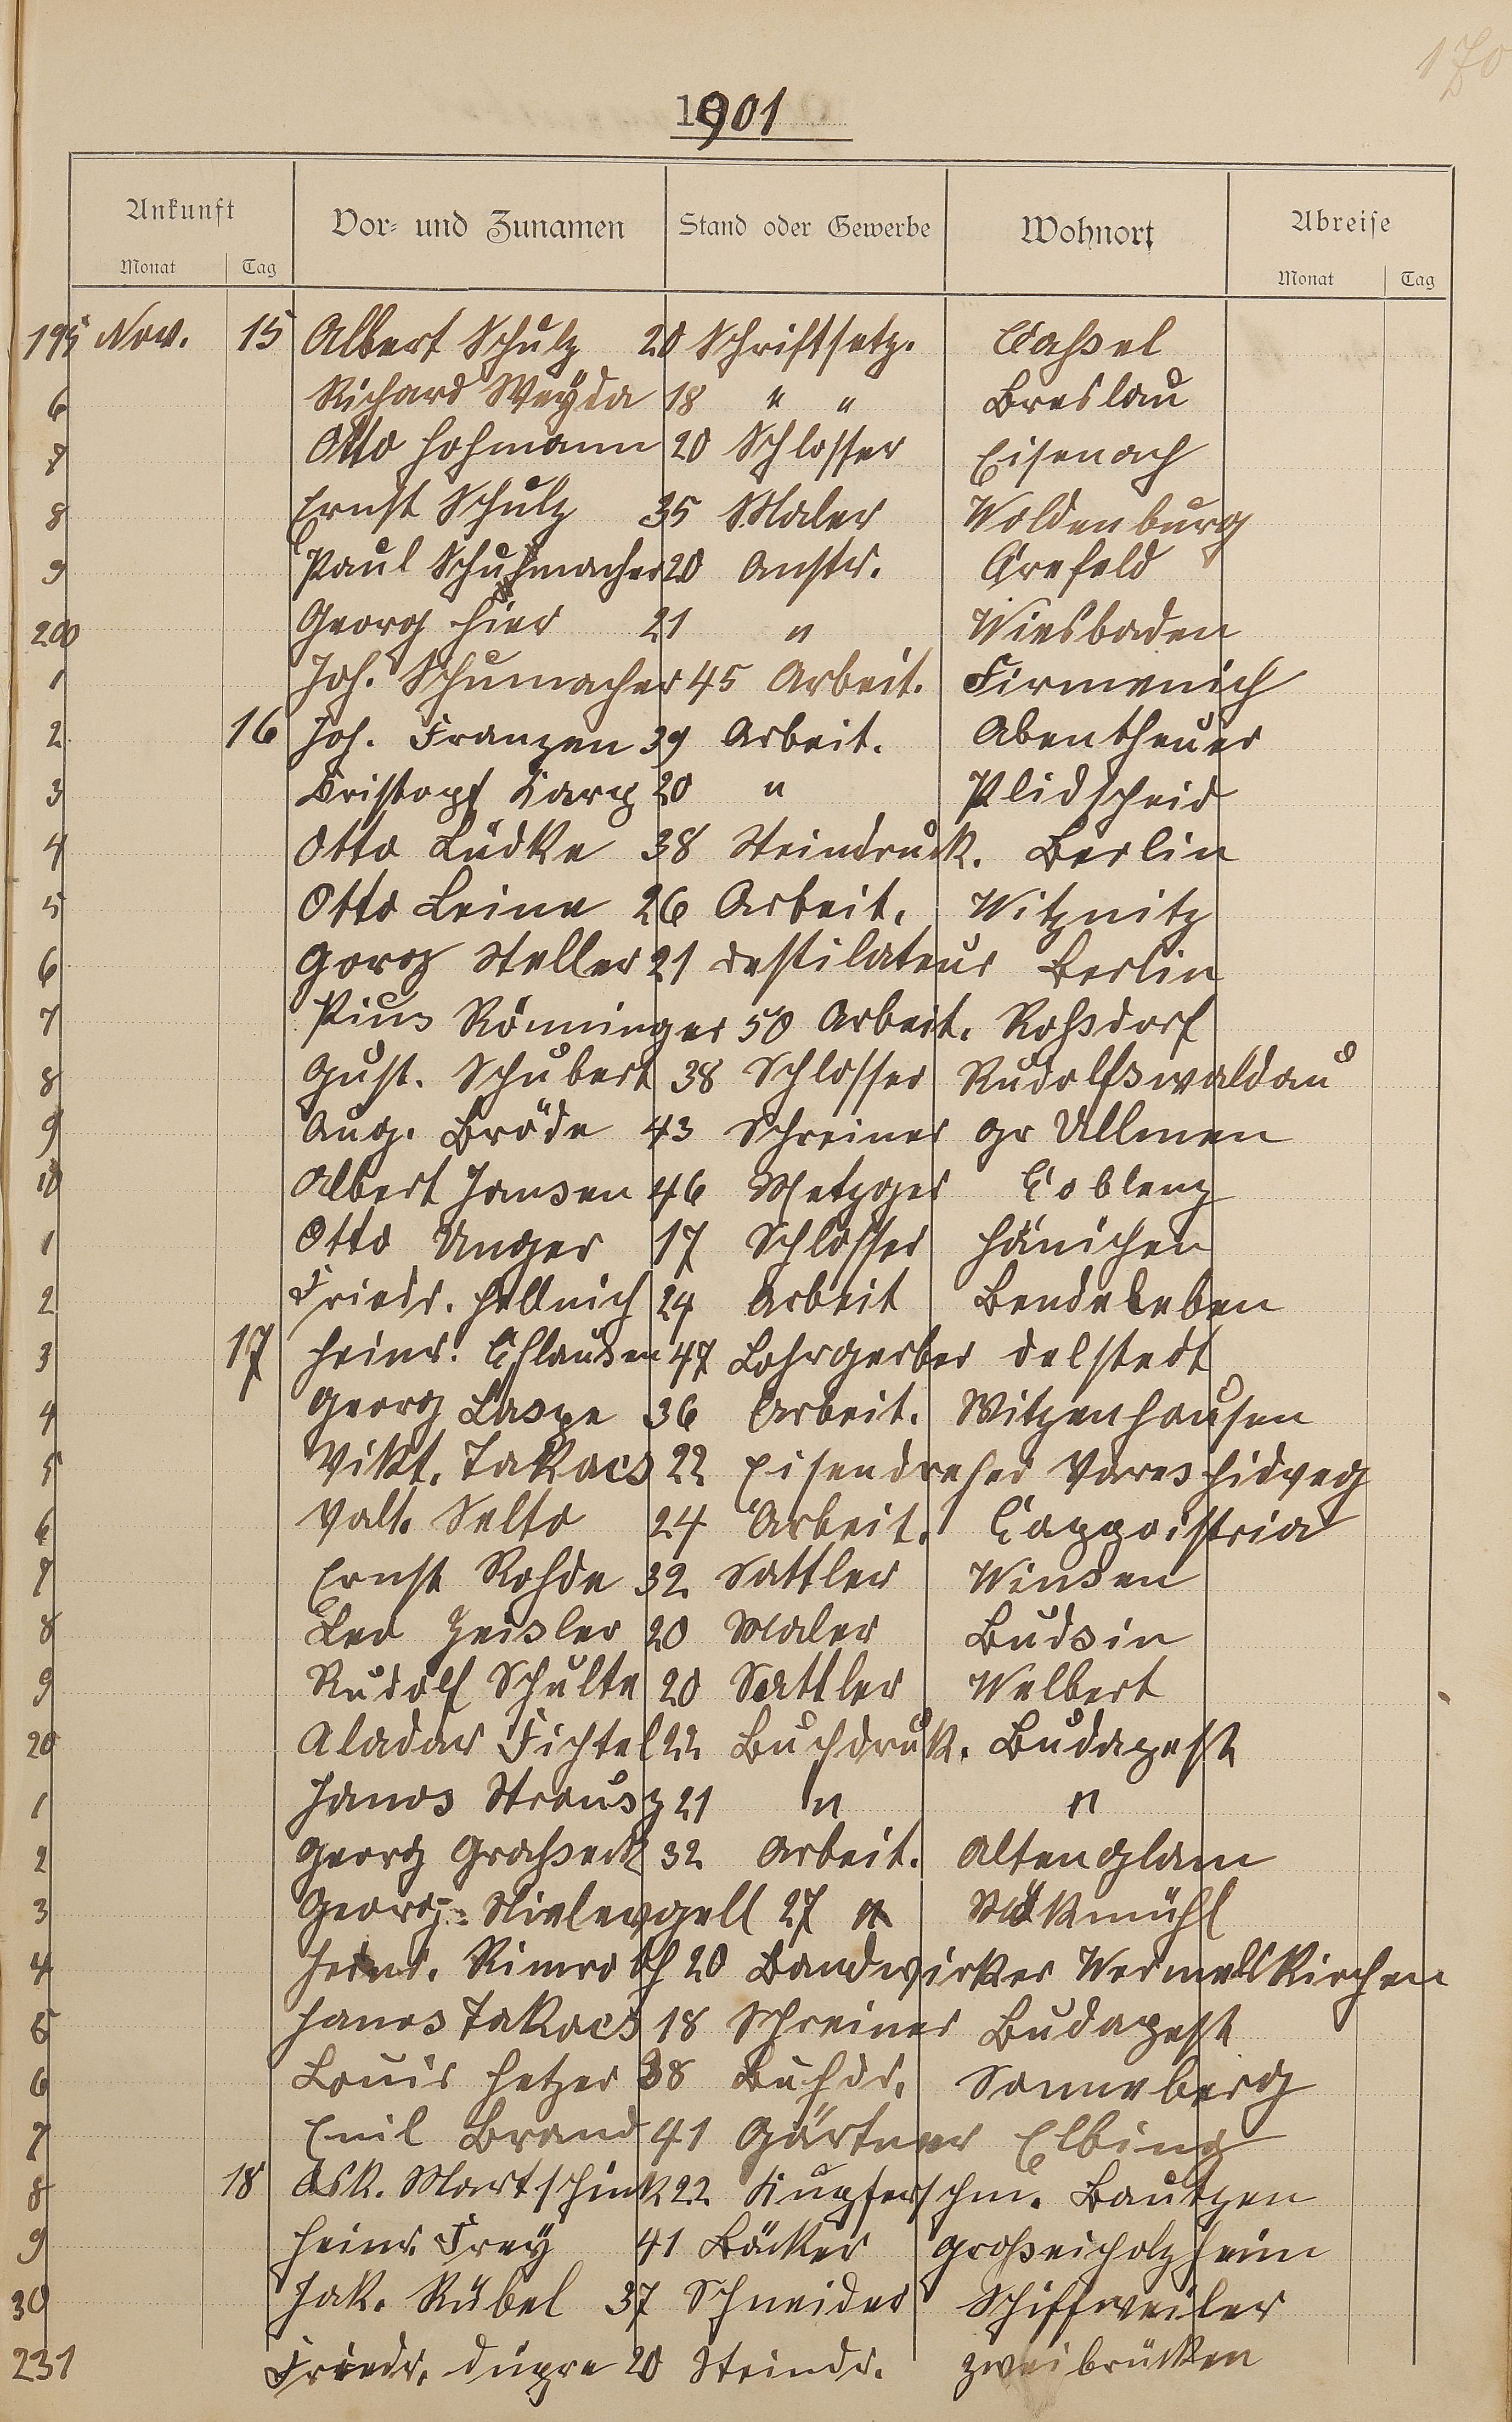 170
1901
Ankunft Vor- und Zunamen Stand oder Gewerbe Wohnort Abreise
Monat Tag Monat Tag
195 Nov. 15 Albert Schulz 20 Schriftsetz. Caßel
6 Richard Weyda 18 " " Breslau
7 Otto Hofmann 20 Schlosser Eisenach
8 Ernst Schulz 35 Maler Woldenburg
9 Paul Schuhmacher 20 Anstr. Crefeld
200 Georg Hier 21 " Wiesbaden
1 Joh. Schumacher 45 Arbeit. Firmenich
2 16 Joh. Franzen 39 Arbeit. Abentheuer
3 Cristopf Karg 20 " Plidscheid
4 Otto Lüdke 38 Steindruck. Berlin
5 Otto Leine 26 Arbeit. Witznitz
6 Gorg Steller 21 Destilateur Berlin
7 Pius Rönninger 50 Arbeit. Roßdorf
8 Gust. Schubert 38 Schlosser Rudolfswaldau
9 Aug. Bröde 43 Schreiner gr Ullmen
10 Albert Jansen 46 Metzger Coblenz
1 Otto Unger 17 Schlosser Hänichen
2 Friedr. Hellnich 24 Arbeit Bendeleben
3 17 Heinr. Chlausen 47 Lohrgerber Delstedt
4 Georg Laspe 36 Arbeit. Witzenhausen
5 Vikt. Takacs 22 Eisendreher Vares Hidveg
6 Valt. Selto 24 Arbeit. Cappoistria
7 Ernst Rohde 32 Sattler Winsen
8 Leo Zeisler 20 Maler Budsin
9 Rudolf Schulte 20 Sattler Velbert
20 Aladar Fichtel 22 Buchdruk. Budapest
1 Janos Strausz 21 " "
2 Georg Graßeck 32 Arbeit. Altenglam
3 Georg 27 " Möckmühl
4 Heinr. Rimroth 20 Bandwirker Wermelskirchen
5 Janos Takacs 18 Schreiner Budapest
6 Louis Hetzer 38 Buchdr. Sonneberg
7 Emil Brand 41 Gärtner Elbing
8 18 Osk. Martschink 22 Kupferschm. Bautzen
9 Heinr. Frey 41 Bäcker Großeicholzheim
30 Jak. Rübel 37 Schneider Schiffweiler
231 Friedr. Dupre 20 Steindr. Zweibrücken